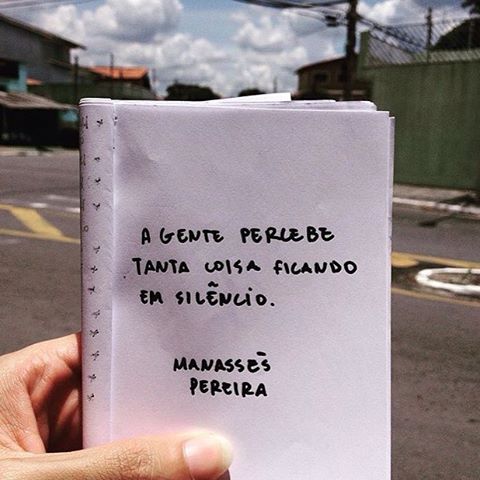 A GENTE PERCEBE
TANTA COISA FICANDO
EM SILÊNCIO.
MANASSÉS
PEREIRA